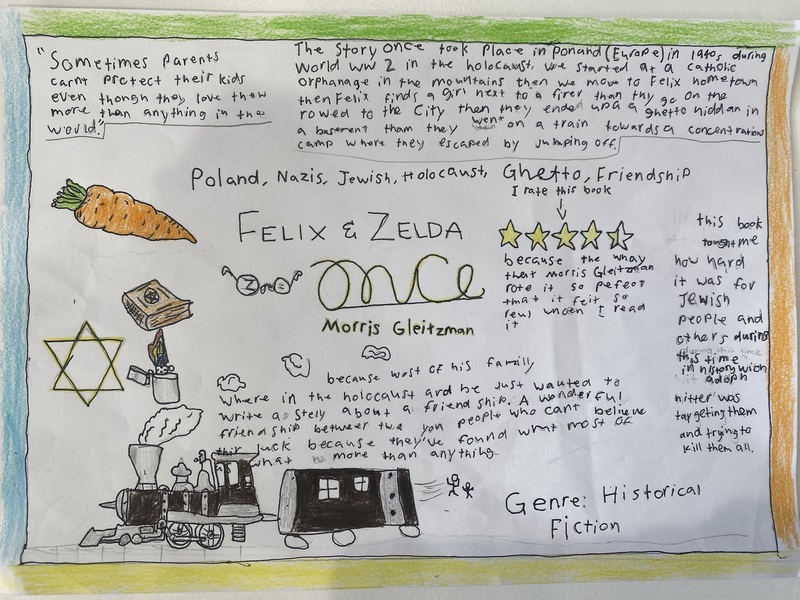 "Sometimes Parents
carnt protect their kids
even though they love them
more than anything in the
world."
The Story once took place in Ponand (Europe) in 1940s during
World WW 2 in the holocaust. We started at a catholic
orphanage in the mountains then we move to Felix hometown
then Felix finds a girl next to a firer than thy go on the
rowed to the City then they ended up a a ghetto hiddan in
a basement tham they went on a train towards a concentration
camp where they escaped by Jumping off.
Poland, Nazis, Jewish, Holocaust, Ghetto, Friendship
I rate this book
FELIX & ZELDA
once
Morris Gleitzman
because the whay
that Morris Gleitzman
rote it so perfect
that it felt so
reul when I read
it
this book
tought me
how hard
it was for
Jewish
people and
others during
this time
in history with
adolph
hitter was
targeting them
and trying to
kill them all.
because most of his familly
Where in the holocaust and he Just wanted to
write a story about a friendship. A wonderful
friendship between two you people who cant believe
their luck because they've found what most of
what more than anything.
Genre: Historical
Fiction